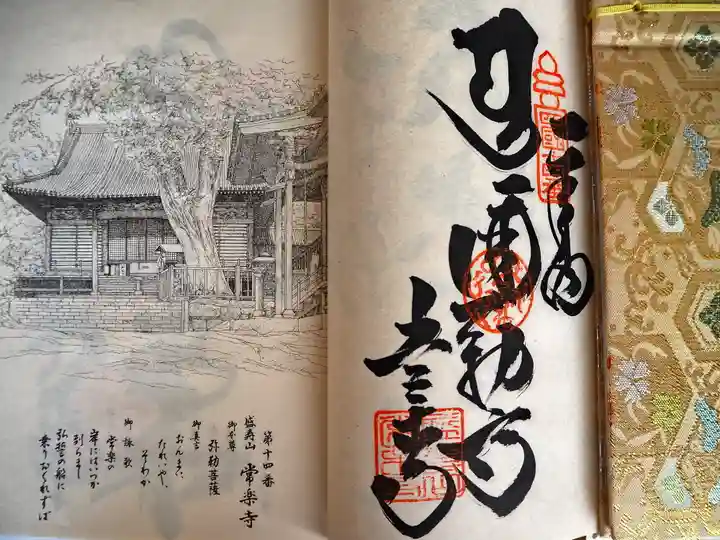 奉納
常楽寺
第十四番
盛寿山 常楽寺
御本尊
弥勒菩薩
御真言
おん まい
たれいや
そわか
御詠歌
常楽の
岸にはいつか
到らまし
弘誓の船に
乗りおくれずば